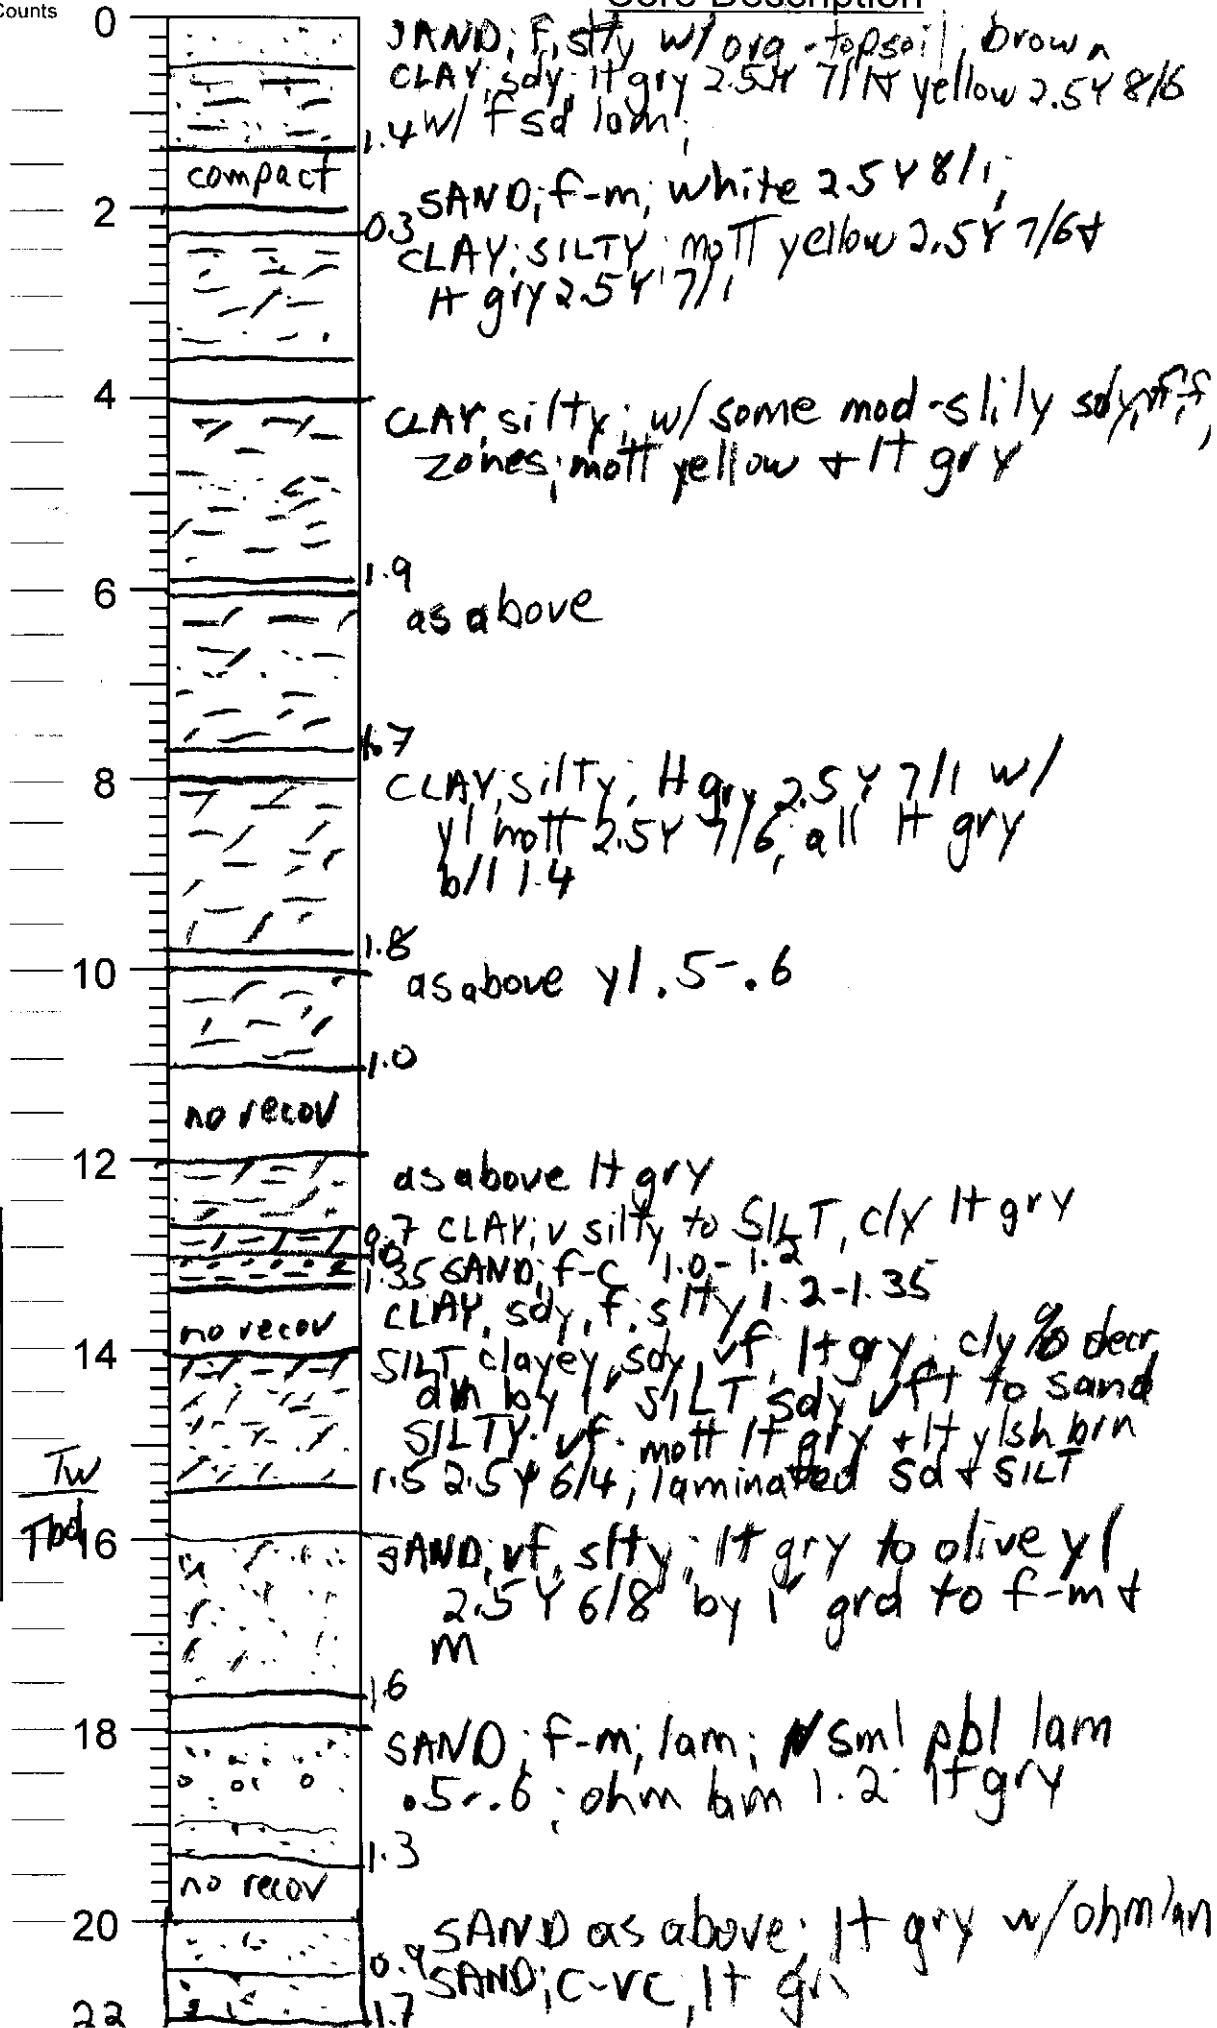 Counts
Core Description
0
SAND; f, slty w/ org - topsoil, brown
CLAY; sdy; lt gry 2.5Y 7/1 + yellow 2.5Y 8/6
w/ f sd lam;
1.4
compact
SAND; f-m; white 2.5Y 8/1;
2
0.3
CLAY; SILTY; mott yellow 2.5Y 7/6 +
lt gry 2.5Y 7/1
4
CLAY, silty; w/ some mod-slily sdy, vf-f,
zones; mott yellow + lt gry
1.9
6
as above
1.7
8
CLAY, silty; lt gry 2.5Y 7/1 w/
yl mott 2.5Y 7/6, all lt gry
b/l 1.4
1.8
10
as above yl .5-.6
1.0
no recov
12
as above lt gry
0.7 CLAY; v silty to SILT, cly lt gry
1.0
1.35 SAND; f-c 1.0-1.2
CLAY, sdy, f, slty 1.2-1.35
no recov
14
SILT, clayey, sdy, vf, lt gry; cly % decr
dn by 1' SILT sdy vf + to sand
SILTY; vf; mott lt gry + lt ylsh brn
1.5 2.5Y 6/4; laminated Sd + SILT
Tw
Tbd
16
SAND; vf, slty; lt gry to olive yl
2.5Y 6/8 by 1' grd to f-m +
m
1.6
18
SAND; f-m; lam; sml pbl lam
.5-.6; ohm lam 1.2; lt gry
1.3
no recov
20
SAND as above; lt gry w/ ohm lam
0.9
SAND; c-vc, lt gry
1.7
22